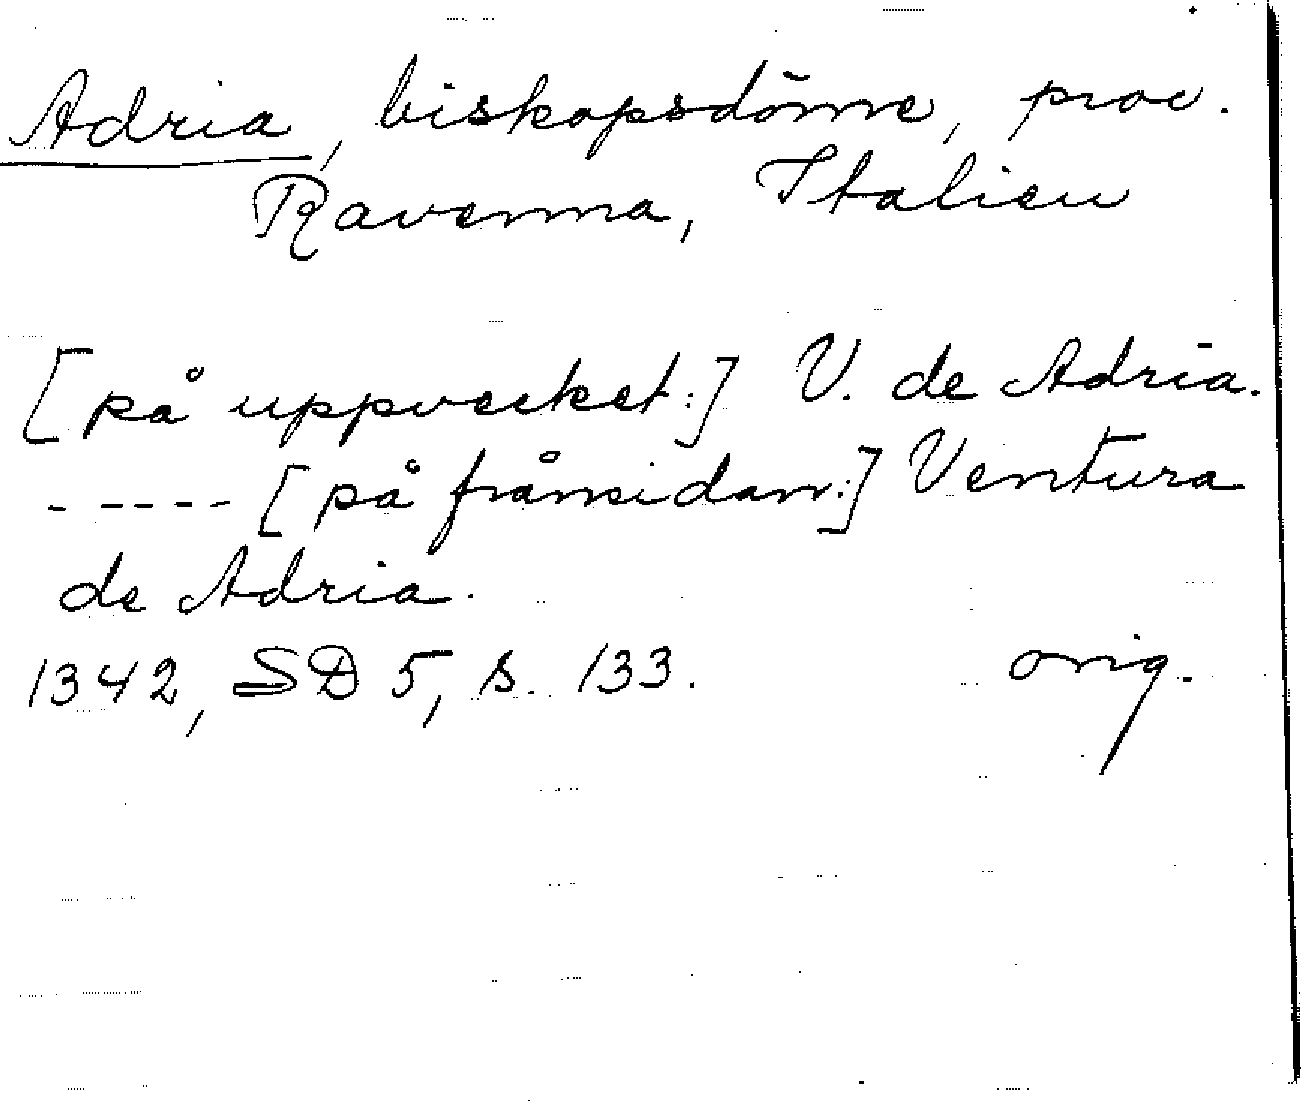 Adria, biskopsdöme, prov.
Ravenna, Italien
[på uppvecket:] V. de Adria.
----- [på frånsidan:] Ventura
de Adria.
1342, SD 5, s. 133. orig.